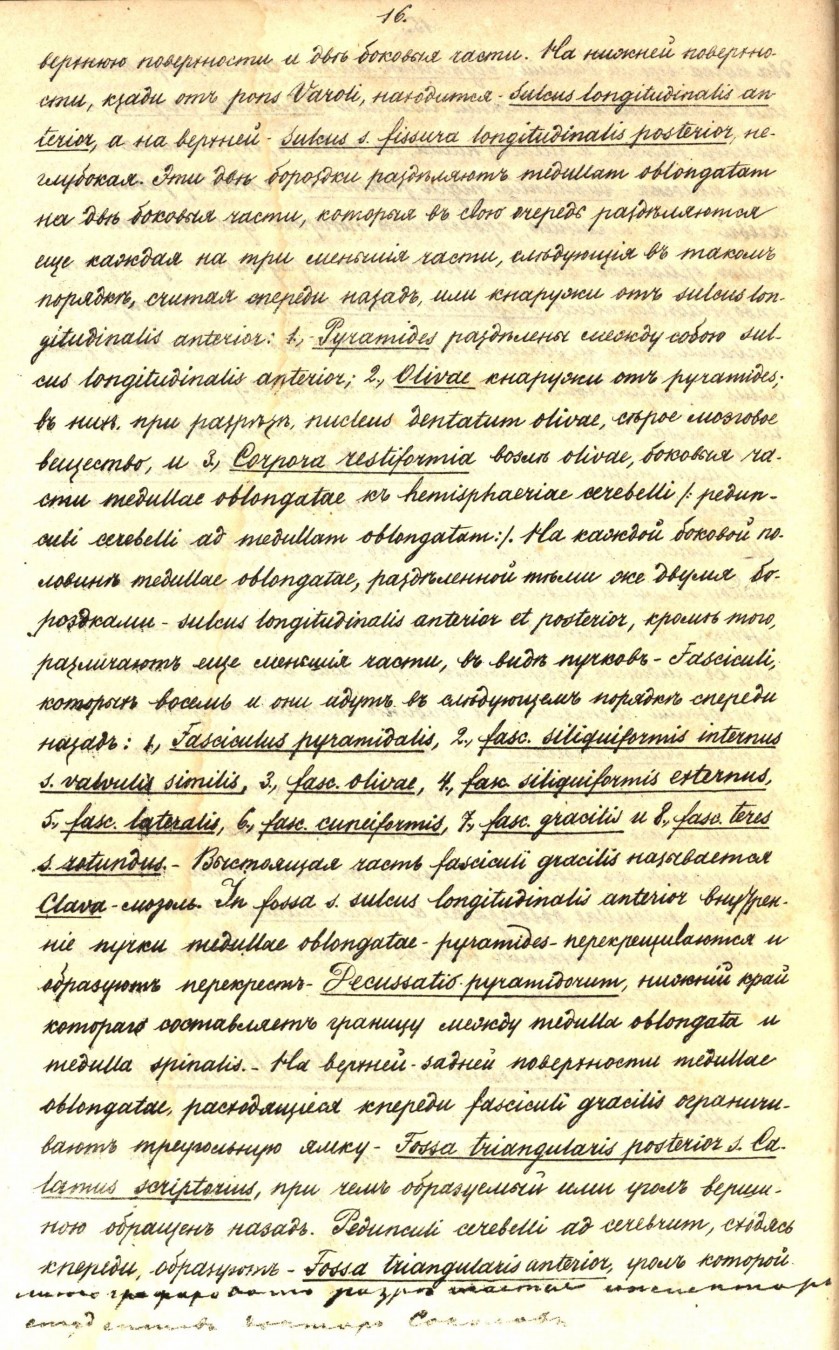 16.
верхнюю поверхности и двѣ боковыя части. На нижней поверхно-
сти, кзади отъ pons Varoli, находится - sulcus longitudinalis an-
terior, а на верхней - sulcus s. fissura longitudinalis posterior, не-
глубокая. Эти двѣ бороздки раздѣляютъ medullam oblongatam
на двѣ боковыя части, которыя въ свою очередь раздѣляются
еще каждая на три меньшія части, слѣдующія въ такомъ
порядкѣ, считая спереди назадъ, или кнаружи отъ sulcus lon-
gitudinalis anterior: 1., Pyramides раздѣлены между собою sul-
cus longitudinalis anterior; 2., Olivae кнаружи отъ pyramides;
въ них. при разрѣзѣ, nucleus dentatum olivae, сѣрое мозговое
вещество, и 3., Corpora restiformia возлѣ olivae, боковыя ча-
сти medullae oblongatae къ hemisphaeriae cerebelli /: pedun-
culi cerebelli ad medullam oblongatam:/. На каждой боковой по-
ловинѣ medullae oblongatae, раздѣленной тѣми же двумя бо-
роздками - sulcus longitudinalis anterior et posterior, кромѣ того,
различаютъ еще меньшія части, въ видѣ пучковъ - Fasciculi,
которыхъ восемь и они идутъ въ слѣдующемъ порядкѣ спереди
назадъ: 1., Fasciculus pyramidalis, 2., fasc. siliquiformis internus
s. valvulis similis, 3., fasc. olivae, 4., fasc. siliquiformis externus,
5., fasc. lateralis, 6., fasc. cuneiformis, 7., fasc. gracilis и 8., fasc. teres
s. rotundus. - Выстоящая часть fasciculi gracilis называется
Clava - мозоль. In fossa s. sulcus longitudinalis anterior внутрен-
ніе пучки medullae oblongatae - pyramides - перекрещиваются и
образуютъ перекрестъ - Decussatio pyramidorum, нижній край
котораго составляетъ границу между medulla oblongata и
medulla spinalis. - На верхней-задней поверхности medullae
oblongatae, расходящіеся кпереди fasciculi gracilis ограничи-
ваютъ треугольную ямку - Fossa triangularis posterior s. Ca-
lamus scriptorius, при чемъ образуемый ими уголъ верши-
ною обращенъ назадъ. Pedunculi cerebelli ad cerebrum, сходясь
кпереди, образуютъ - Fossa triangularis anterior, уголъ которой
литографировать разрѣшается инспекторъ
студентовъ докторъ